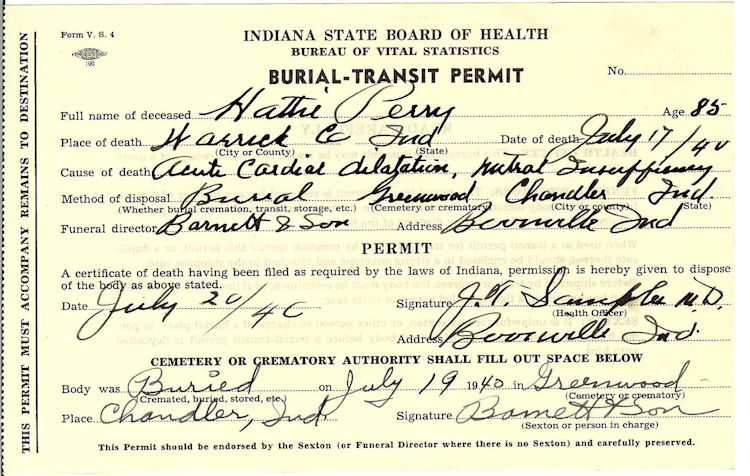 Form V. S. 4
100
INDIANA STATE BOARD OF HEALTH
BUREAU OF VITAL STATISTICS
BURIAL-TRANSIT PERMIT
No.
Full name of deceased Hattie Perry Age 85
Place of death Warrick Co Ind Date of death July 17/40
(City or County) (State)
Cause of death Acute Cardiac dilatation, Mitral Insufficiency
Method of disposal Burial Greenwood Chandler Ind.
(Whether burial cremation, transit, storage, etc.) (Cemetery or crematory) (City or county) (State)
Funeral director Barnett & Son Address Boonville Ind
PERMIT
A certificate of death having been filed as required by the laws of Indiana, permission is hereby given to dispose
of the body as above stated.
Date July 20/40 Signature J. T. M.D.
(Health Officer)
Address Boonville Ind.
CEMETERY OR CREMATORY AUTHORITY SHALL FILL OUT SPACE BELOW
Body was Buried on July 19 1940 in Greenwood
(Cremated, buried, stored, etc.) (Cemetery or crematory)
Place Chandler, Ind. Signature Barnett & Son
(Sexton or person in charge)
This Permit should be endorsed by the Sexton (or Funeral Director where there is no Sexton) and carefully preserved.
THIS PERMIT MUST ACCOMPANY REMAINS TO DESTINATION